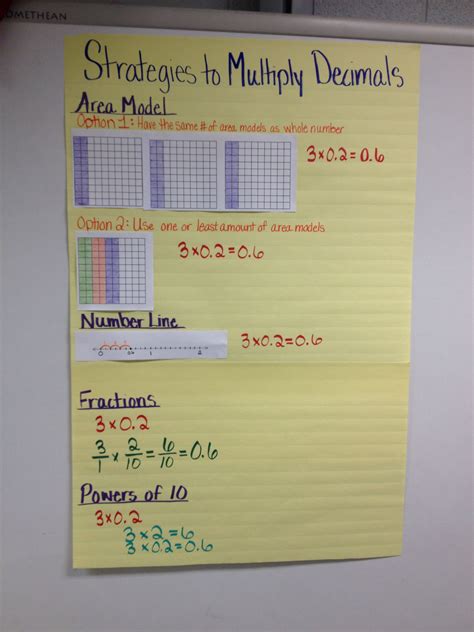 OMETHEAN
Strategies to Multiply Decimals
Area Model
Option 1: Have the same # of area models as whole number
3×0.2=0.6
Option 2: Use one or least amount of area models
3×0.2=0.6
Number Line
3×0.2=0.6
0 0.6 1 2
Fractions
3×0.2
3/1 × 2/10 = 6/10 = 0.6
Powers of 10
3×0.2
3×2=6
3×0.2=0.6